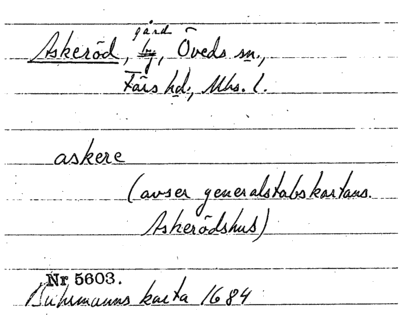 gård
Askeröd, by, Öveds sn.,
Färs hd., Mhs. l.
askere
(avser generalstabskartans
Askerödshus)
Nr 5603.
Buhrmanns karta 1684